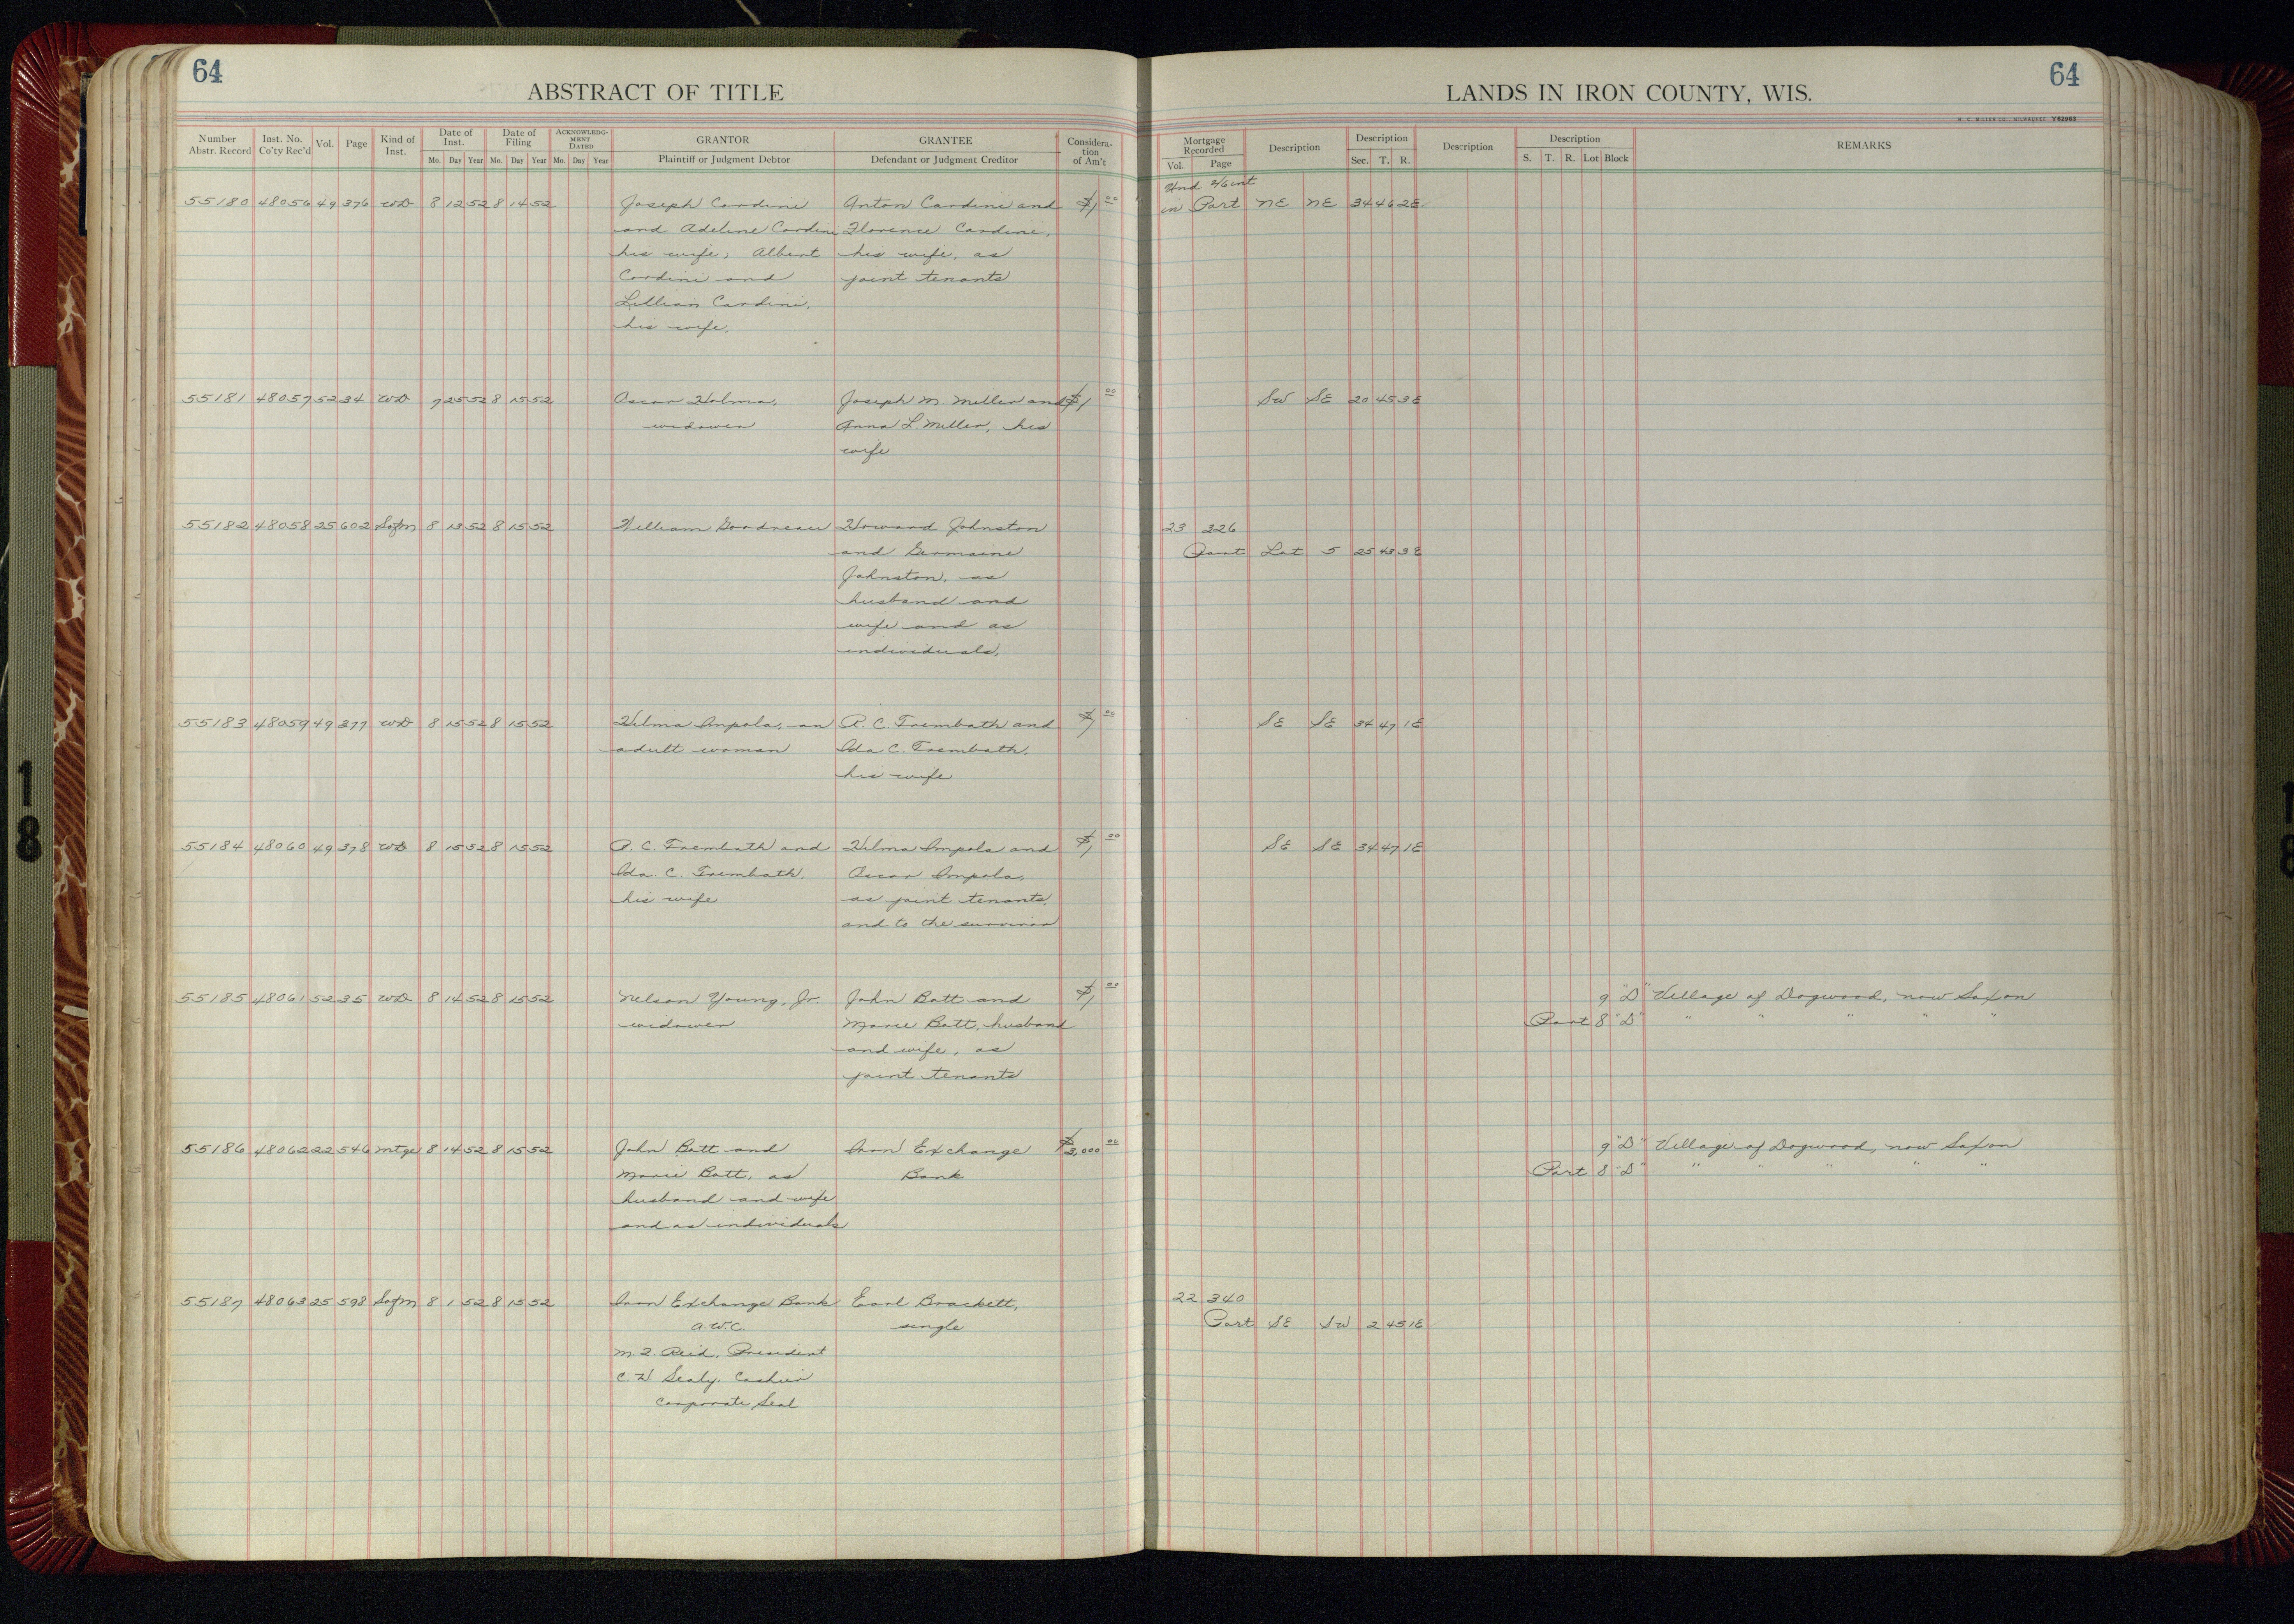 64
ABSTRACT OF TITLE
LANDS IN IRON COUNTY, WIS.
64
H. C. MILLER CO., MILWAUKEE Y62963
Number Abstr. Record Inst. No. Co'ty Rec'd Vol. Page Kind of Inst. Date of Inst. Mo. Day Year Date of Filing Mo. Day Year ACKNOWLEDGMENT DATED Mo. Day Year GRANTOR Plaintiff or Judgment Debtor GRANTEE Defendant or Judgment Creditor Consideration of Am't Mortgage Recorded Vol. Page Description Description Sec. T. R. Description Description S. T. R. Lot Block REMARKS
Und 2/6 int
55180 48056 49 376 WD 8 12 52 8 14 52 Joseph Cardini Anton Cardini and $1 00 in Part NE NE 34 46 2E
and Adeline Cardini Florence Cardini,
his wife; Albert his wife, as
Cardini and joint tenants
Lillian Cardini,
his wife.
55181 48057 52 34 WD 7 25 52 8 15 52 Oscar Holma, Joseph M. Miller and $1 00 SW SE 20 45 3E
widower Anna L. Miller, his
wife
55182 48058 25 602 Sofm 8 13 52 8 15 52 William Goodreau Howard Johnston 23 326
and Germaine Part Lot 5 25 43 3E
Johnston, as
husband and
wife and as
individuals,
55183 48059 49 377 WD 8 15 52 8 15 52 Hilma Ampola, an R. C. Trembath and $1 00 SE SE 34 47 1E
adult woman Ida C. Trembath,
his wife
55184 48060 49 378 WD 8 15 52 8 15 52 R. C. Trembath and Hilma Ampola and $1 00 SE SE 34 47 1E
Ida. C. Trembath, Oscar Ampola,
his wife as joint tenants,
and to the survivor
55185 48061 52 35 WD 8 14 52 8 15 52 Nelson Young, Jr. John Batt and $1 00 9 "D" Village of Dogwood, now Saxon
widower Marie Batt, husband Part 8 "D" " " " " "
and wife, as
joint tenants
55186 48062 22 546 Mtge 8 14 52 8 15 52 John Batt and Iron Exchange $3,000 00 9 "D" Village of Dogwood, now Saxon
Marie Batt, as Bank Part 8 "D" " " " " "
husband and wife
and as individuals
55187 48063 25 598 Sofm 8 1 52 8 15 52 Iron Exchange Bank Earl Brackett, 22 340
a.w.c. single Part SE SW 2 45 1E
Reid, President
C. H. Sealy, Cashier
Corporate Seal
18